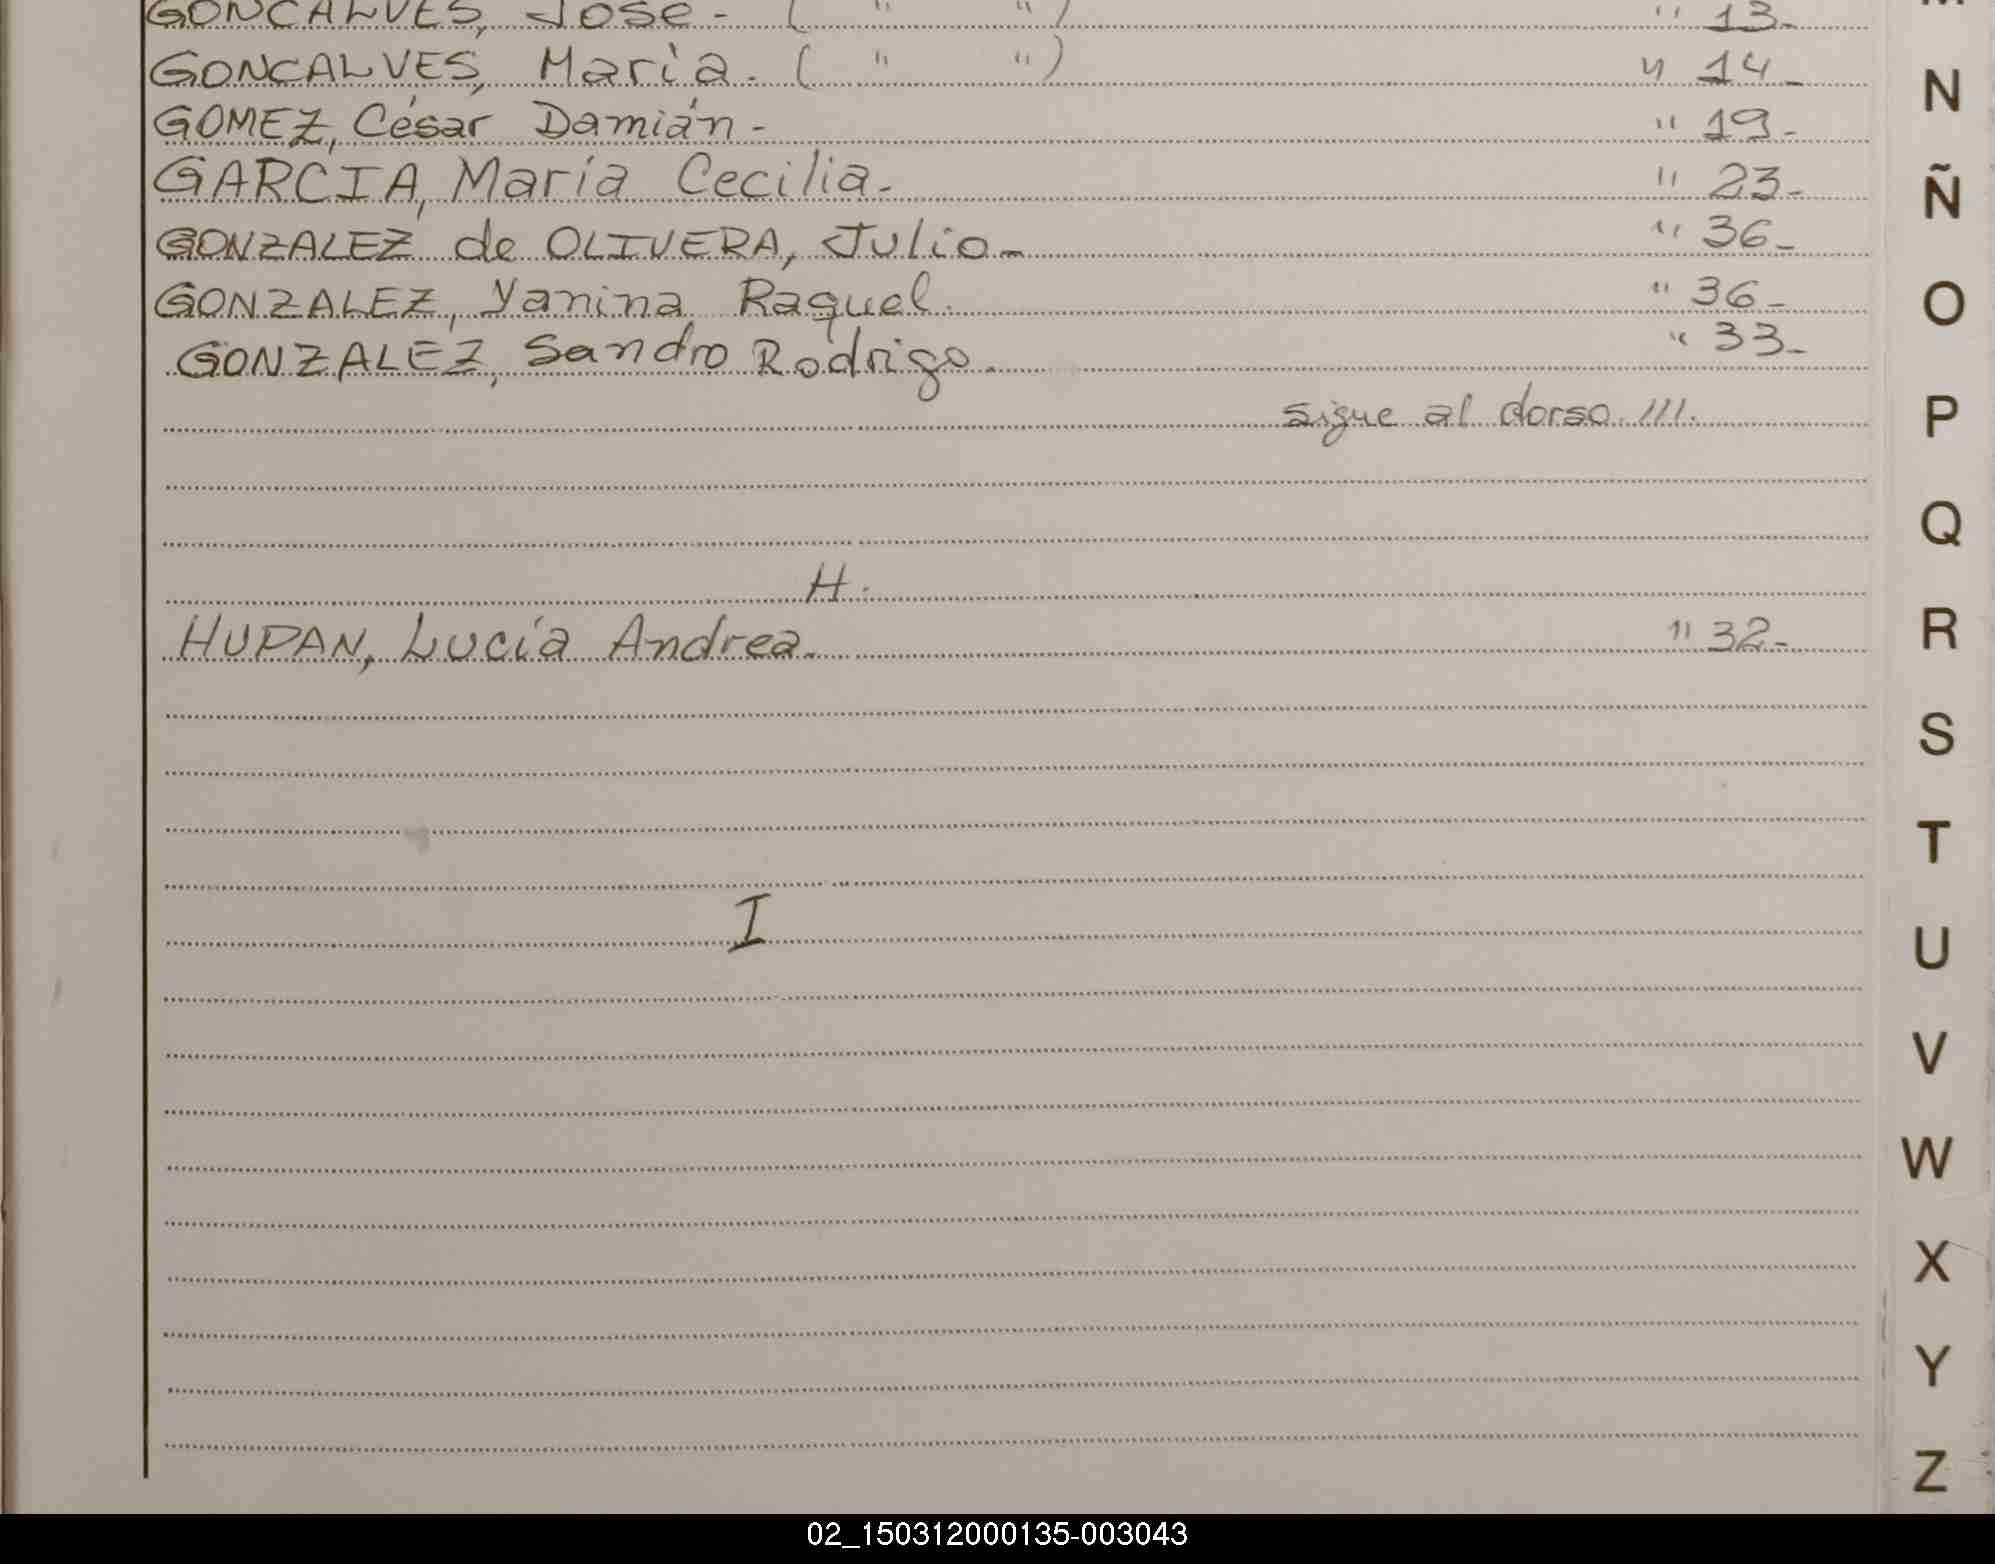 GONCALVES, José - ( " " ) " 13-
GONCALVES, María. ( " " ) " 14-
GOMEZ, César Damián - " 19-
GARCIA, María Cecilia. " 23-
GONZALEZ de OLIVERA, Julio - " 36-
GONZALEZ, Yanina Raquel. " 36-
GONZALEZ, Sandro Rodrigo. " 33-
sigue al dorso. ///.
H.
HUPAN, Lucía Andrea. " 32-
I
N
Ñ
O
P
Q
R
S
T
U
V
W
X
Y
Z
02_150312000135-003043